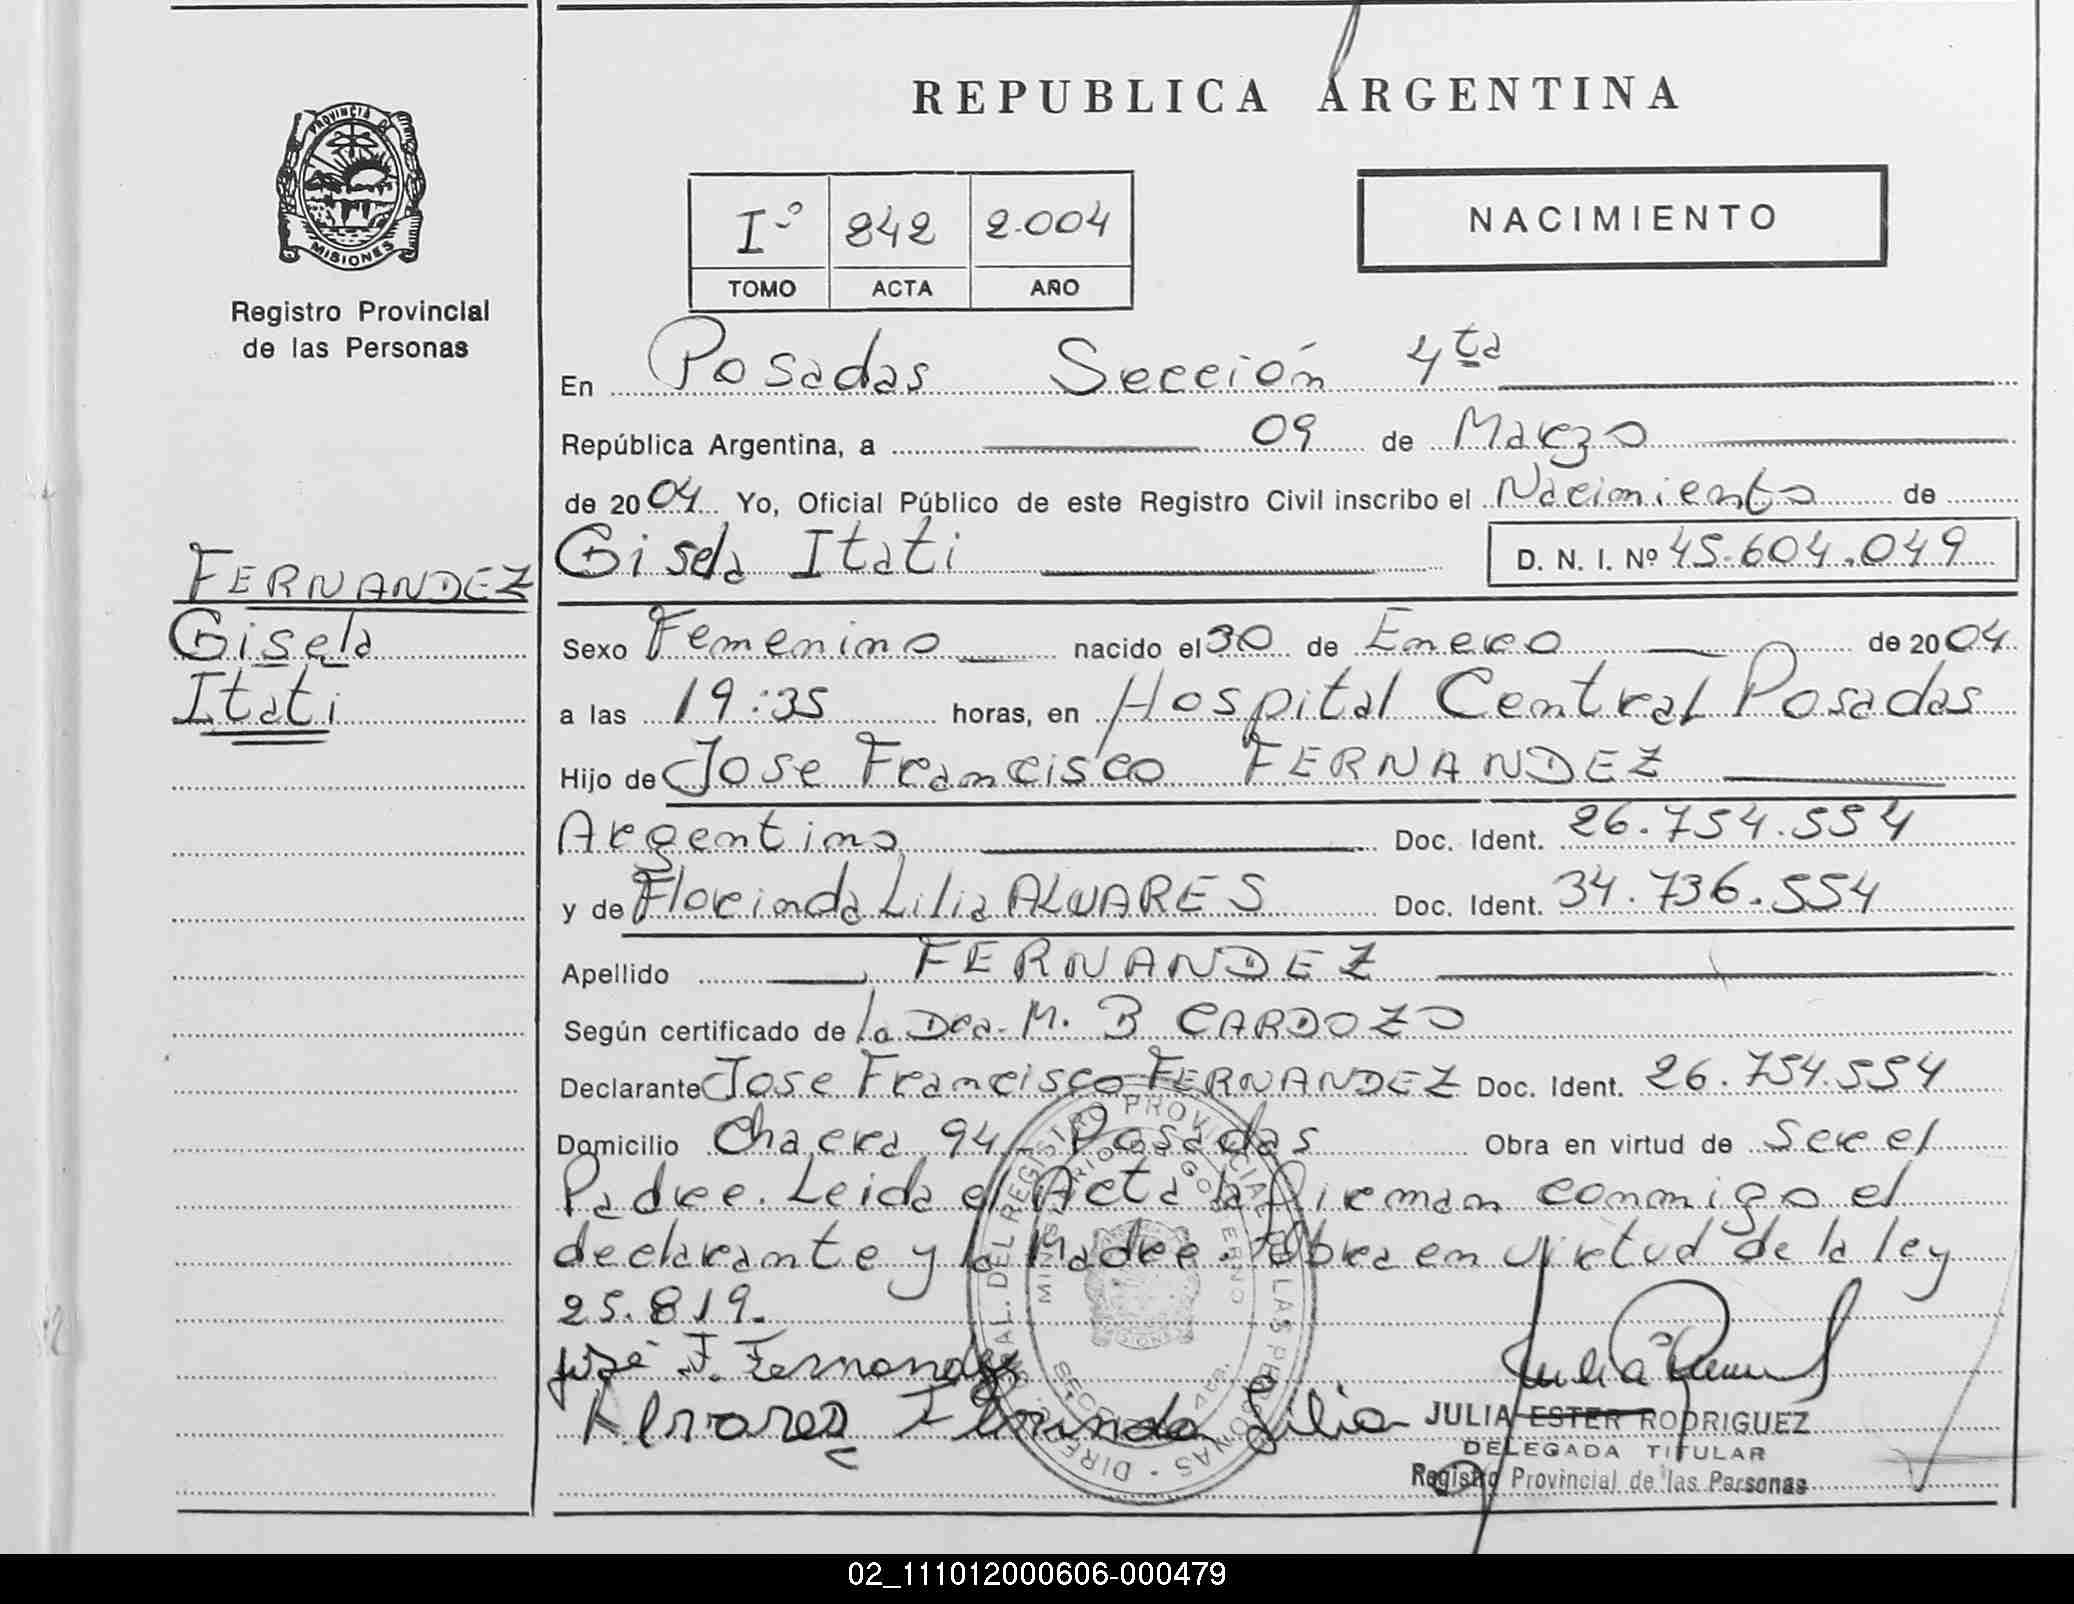 REPUBLICA ARGENTINA
PROVINCIA DE MISIONES
Registro Provincial
de las Personas
Iº 842 2.004
TOMO ACTA AÑO
NACIMIENTO
En Posadas Sección 4ta
República Argentina, a 09 de Marzo
de 2004 Yo, Oficial Público de este Registro Civil inscribo el Nacimiento de
Gisela Itati D. N. I. Nº 45.604.049
FERNANDEZ
Gisela
Itati
Sexo Femenino nacido el 30 de Enero de 2004
a las 19:35 horas, en Hospital Central Posadas
Hijo de Jose Francisco FERNANDEZ
Argentino Doc. Ident. 26.754.554
y de Florinda Lilia ALVARES Doc. Ident. 34.736.554
Apellido FERNANDEZ
Según certificado de la Dra. M. B CARDOZO
Declarante Jose Francisco FERNANDEZ Doc. Ident. 26.754.554
Domicilio Chacra 94 Posadas Obra en virtud de Ser el
Padre. Leida el Acta la firman conmigo el
declarante y la Madre. Obra en virtud de la ley
25.819.
José F. Fernandez
Alvarez Florinda Lilia
JULIA ESTER RODRIGUEZ
DELEGADA TITULAR
Registro Provincial de las Personas
02_111012000606-000479